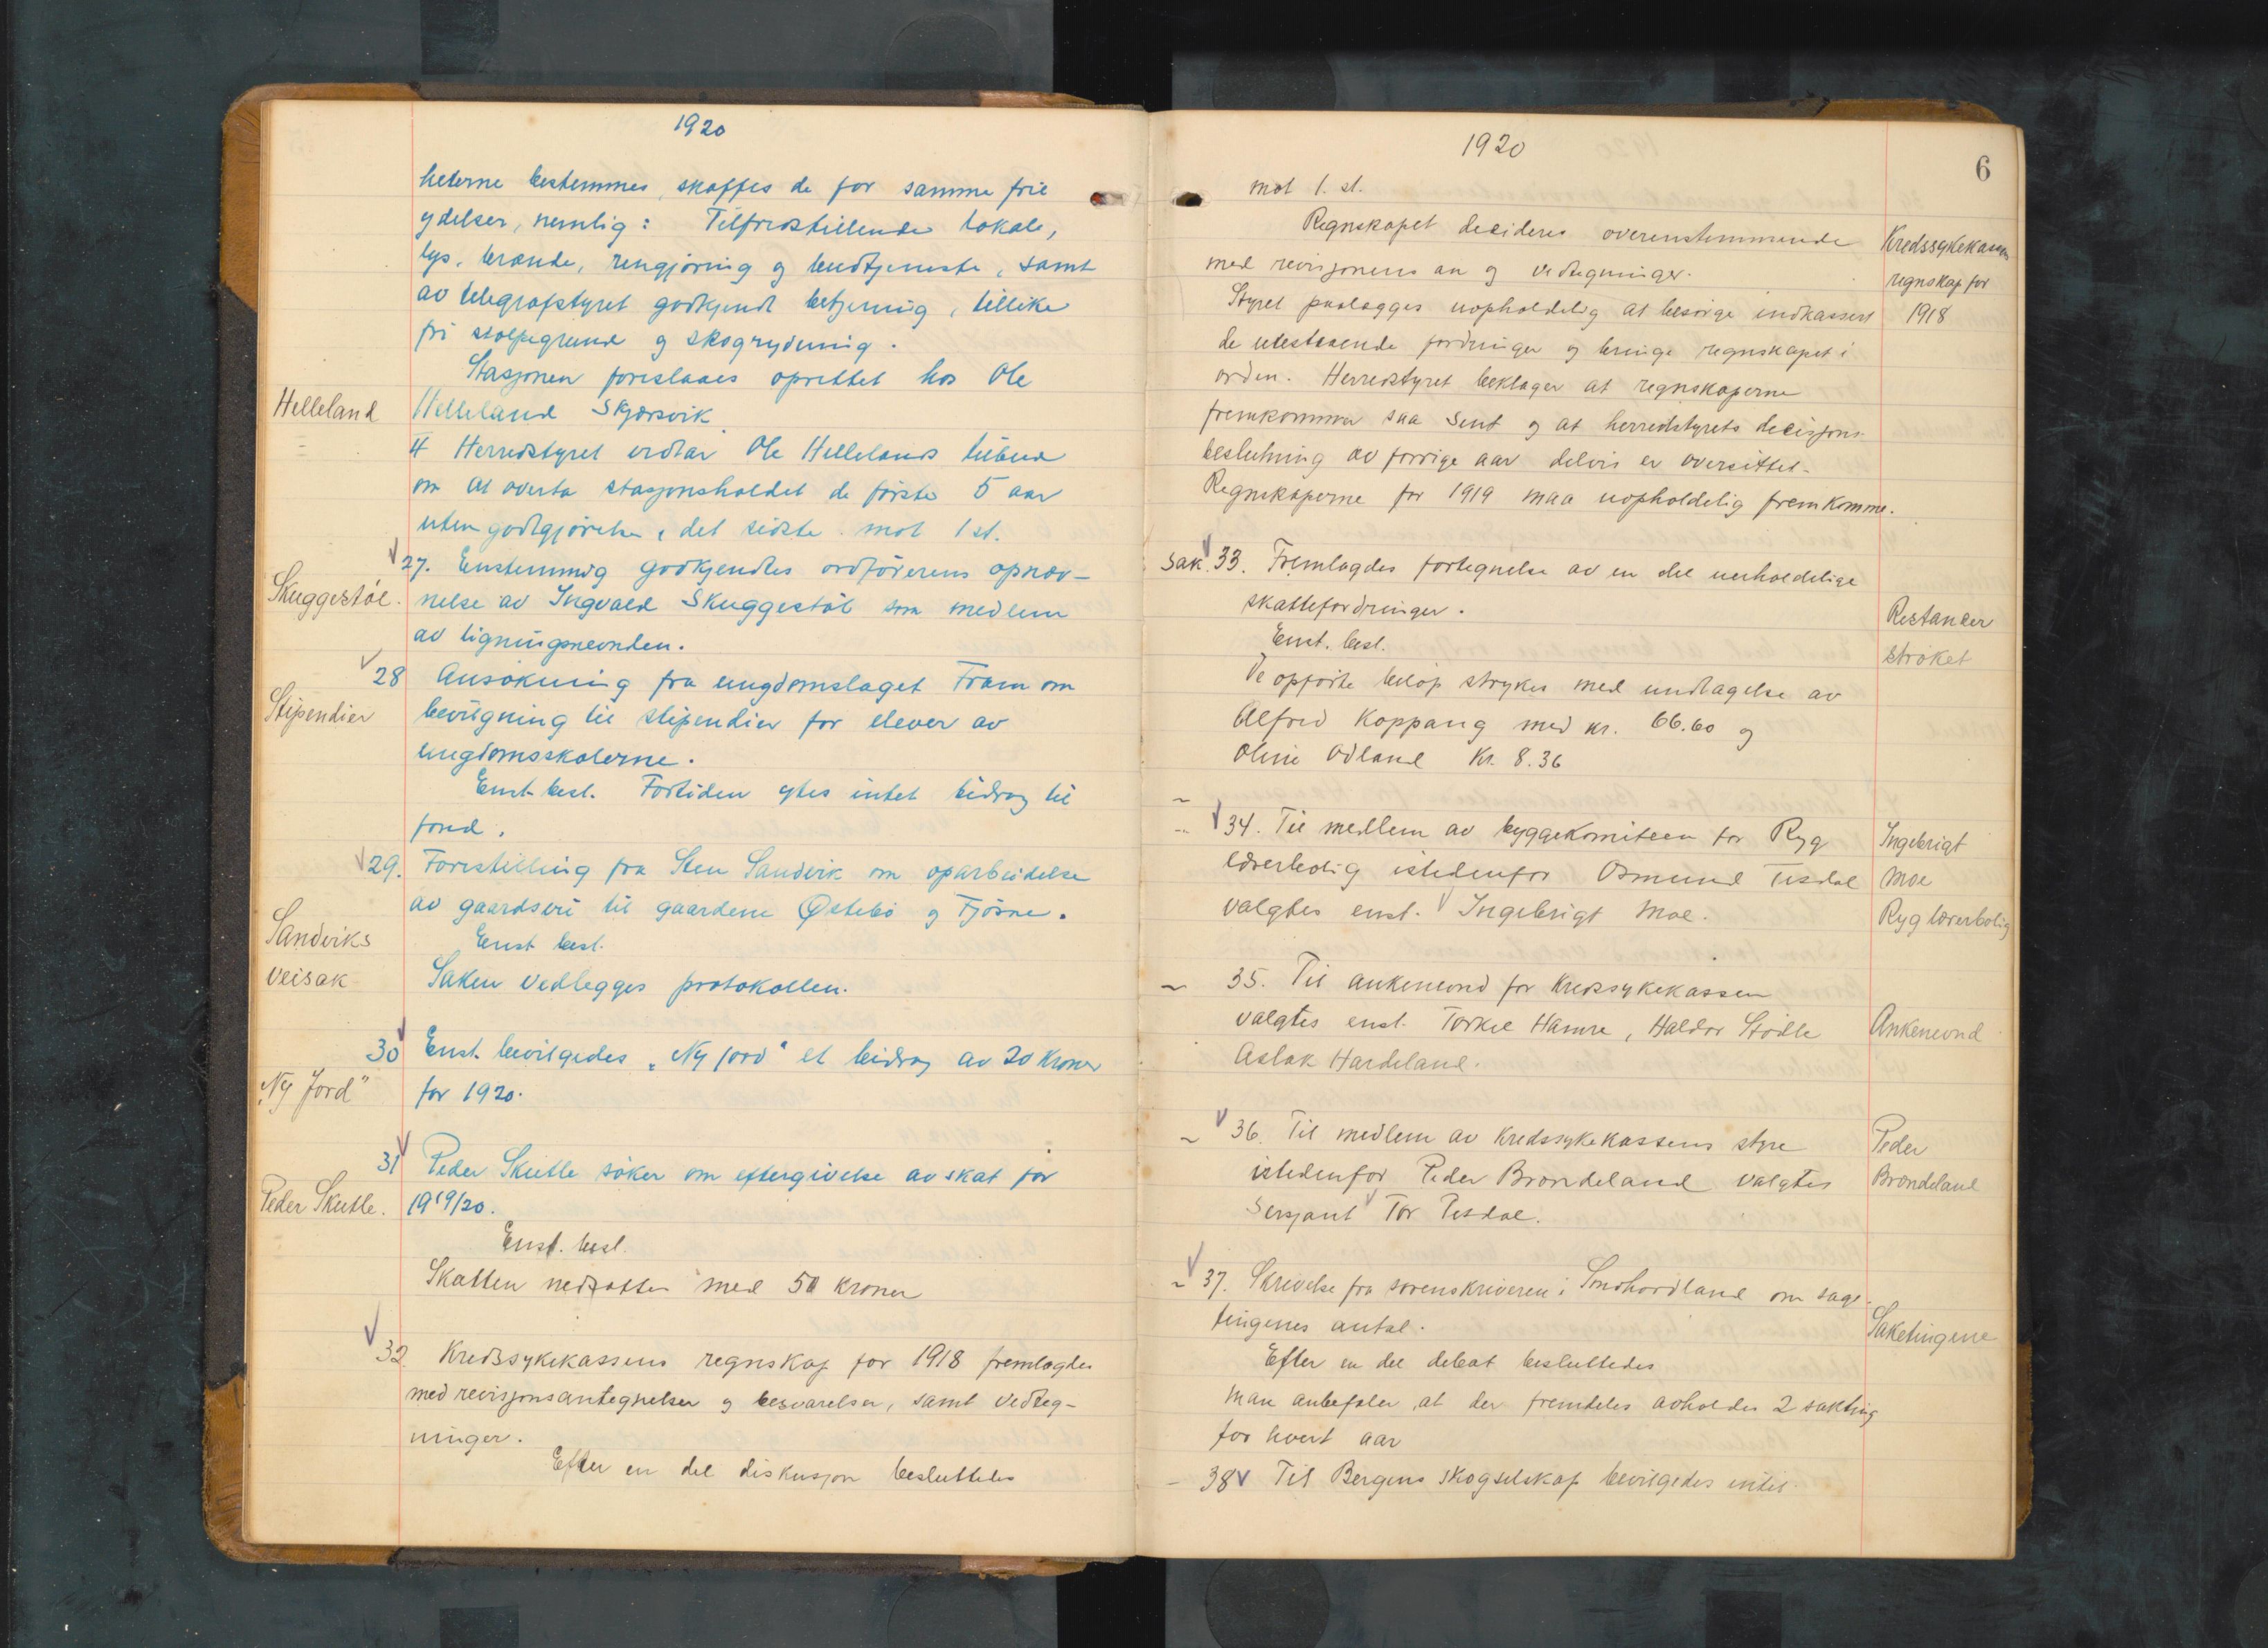 1920
heterne bestemmes, skaffes de for samme frie
ydelser, nemlig: Tilfredsstillende lokale,
lys, brænde, rengjøring og budtjeneste, samt
av telegrafstyret godkjendt betjening, tillike
fri stolpegrund og skogrydning.
Stasjonen foreslaaes oprettet hos Ole
Helleland
Helleland Skjærsvik
II Herredstyret vedtar Ole Hellelands tilbud
om at overta stasjonsholdet de første 5 aar
uten godtgjørelse, det sidste mot 1 st.
27. Enstemmig godkjendtes ordførerens opnæv-
Skuggestøl.
nelse av Ingvald Skuggestøl som medlem
av ligningsnevnden.
28 Ansøkning fra ungdomslaget Fram om
Stipendier
bevilgning til stipendier for elever av
ungdomsskolerne.
Enst. besl. Fortiden ytes intet bidrag til
fond.
29. Forestilling fra Sten Sandvik om oparbeidelse
av gaardsvei til gaardene Østebø og Fjøsne.
Sandviks
Enst besl.
veisak
Saken vedlegges protokollen.
30 Enst. bevilgedes „Ny jord" et bidrag av 20 kroner
„Ny Jord"
for 1920.
31 Peder Skutle søker om eftergivelse av skat for
Peder Skutle.
1919/20.
Enst. besl.
Skatten nedsattes med 50 kroner
32 Kredssykekassens regnskap for 1918 fremlagdes
med revisjonsantegnelser og besvarelser, samt vedteg-
ninger.
Efter en del diskusjon besluttedes
1920
6
mot 1. st.
Regnskapet decideres overenstemmende
Kredssykekassens
med revisjonens an og vedtegninger.
regnskap for
Styret paalægges uopholdelig at besørge indkassert
1918
de utestaaende fordringer og bringe regnskapet i
orden. Herredstyret beklager at regnskaperne
fremkommer saa sent og at herredstyrets decisjons-
beslutning av forrige aar delvis er oversittet.
Regnskaperne for 1919 maa uopholdelig fremkomme.
Sak. 33. Fremlagdes fortegnelse av en del uerholdelige
skattefordringer.
Restancer
Enst. besl.
strøket
De opførte beløp strykes med undtagelse av
Alfred Koppang med kr. 66.60 og
Oline Ødland Kr. 8.36
~
" 34. Til medlem av byggekomiteen for Ryg
Ingebrigt
lærerbolig istedenfor Osmund Tesdal
Moe
valgtes enst. Ingebrigt Moe.
Ryg lærerbolig
~ 35. Til ankenevnd for Kredssykekassen
valgtes enst. Torkel Hamre, Haldor Stødle
Ankenevnd
Aslak Hardeland.
~ 36. Til medlem av Kredssykekassens styre
Peder
istedenfor Peder Brændeland valgtes
Brændeland
Sersjant Tor Tesdal.
~ 37. Skrivelse fra sorenskriveren i Søndhordland om sage-
tingenes antal.
Saketingene
Efter en del debat besluttedes
Man anbefaler, at der fremdeles avholdes 2 sakting
for hvert aar
- 38 Til Bergens Skogselskap bevilgedes intet.